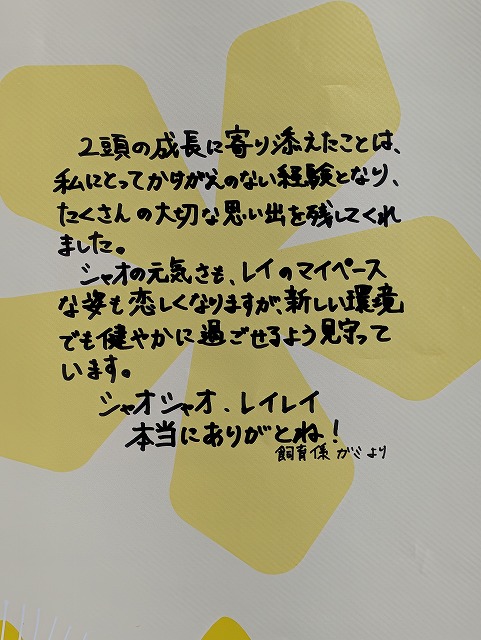 2頭の成長に寄り添えたことは、
私にとってかけがえのない経験となり、
たくさんの大切な思い出を残してくれ
ました。
シャオの元気さも、レイのマイペース
な姿も恋しくなりますが、新しい環境
でも健やかに過ごせるよう見守って
います。
シャオシャオ、レイレイ
本当にありがとね!
飼育係 ガミより